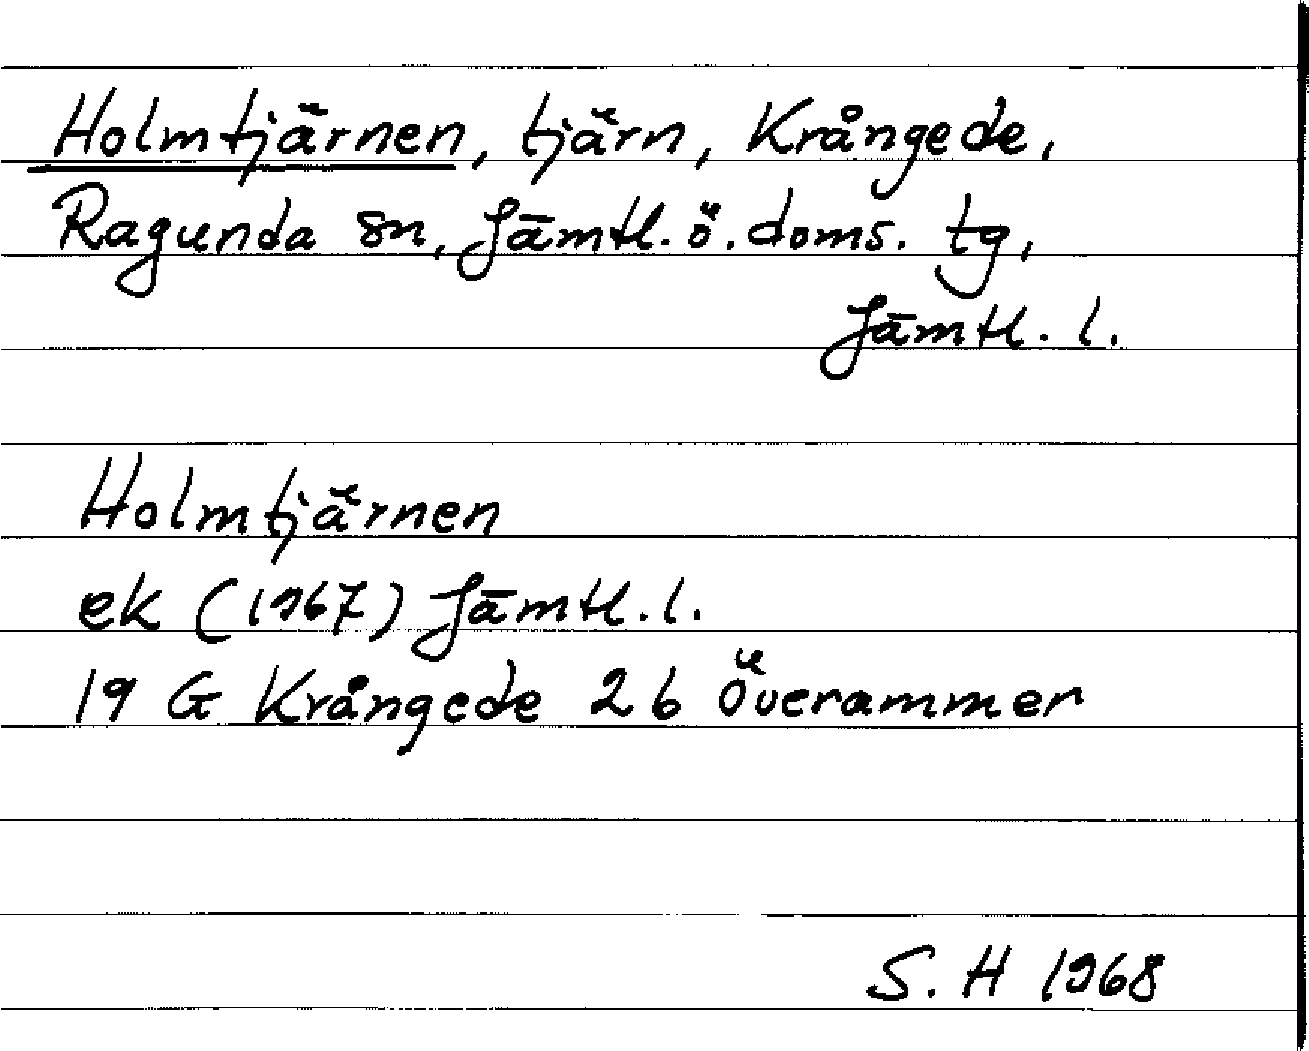 Holmtjärnen, tjärn, Krångede,
Ragunda sn, Jämtl. ö. doms. tg,
Jämtl. l.
Holmtjärnen
ek (1967) Jämtl. l.
19 G Krångede 2b Överammer
S. H 1968